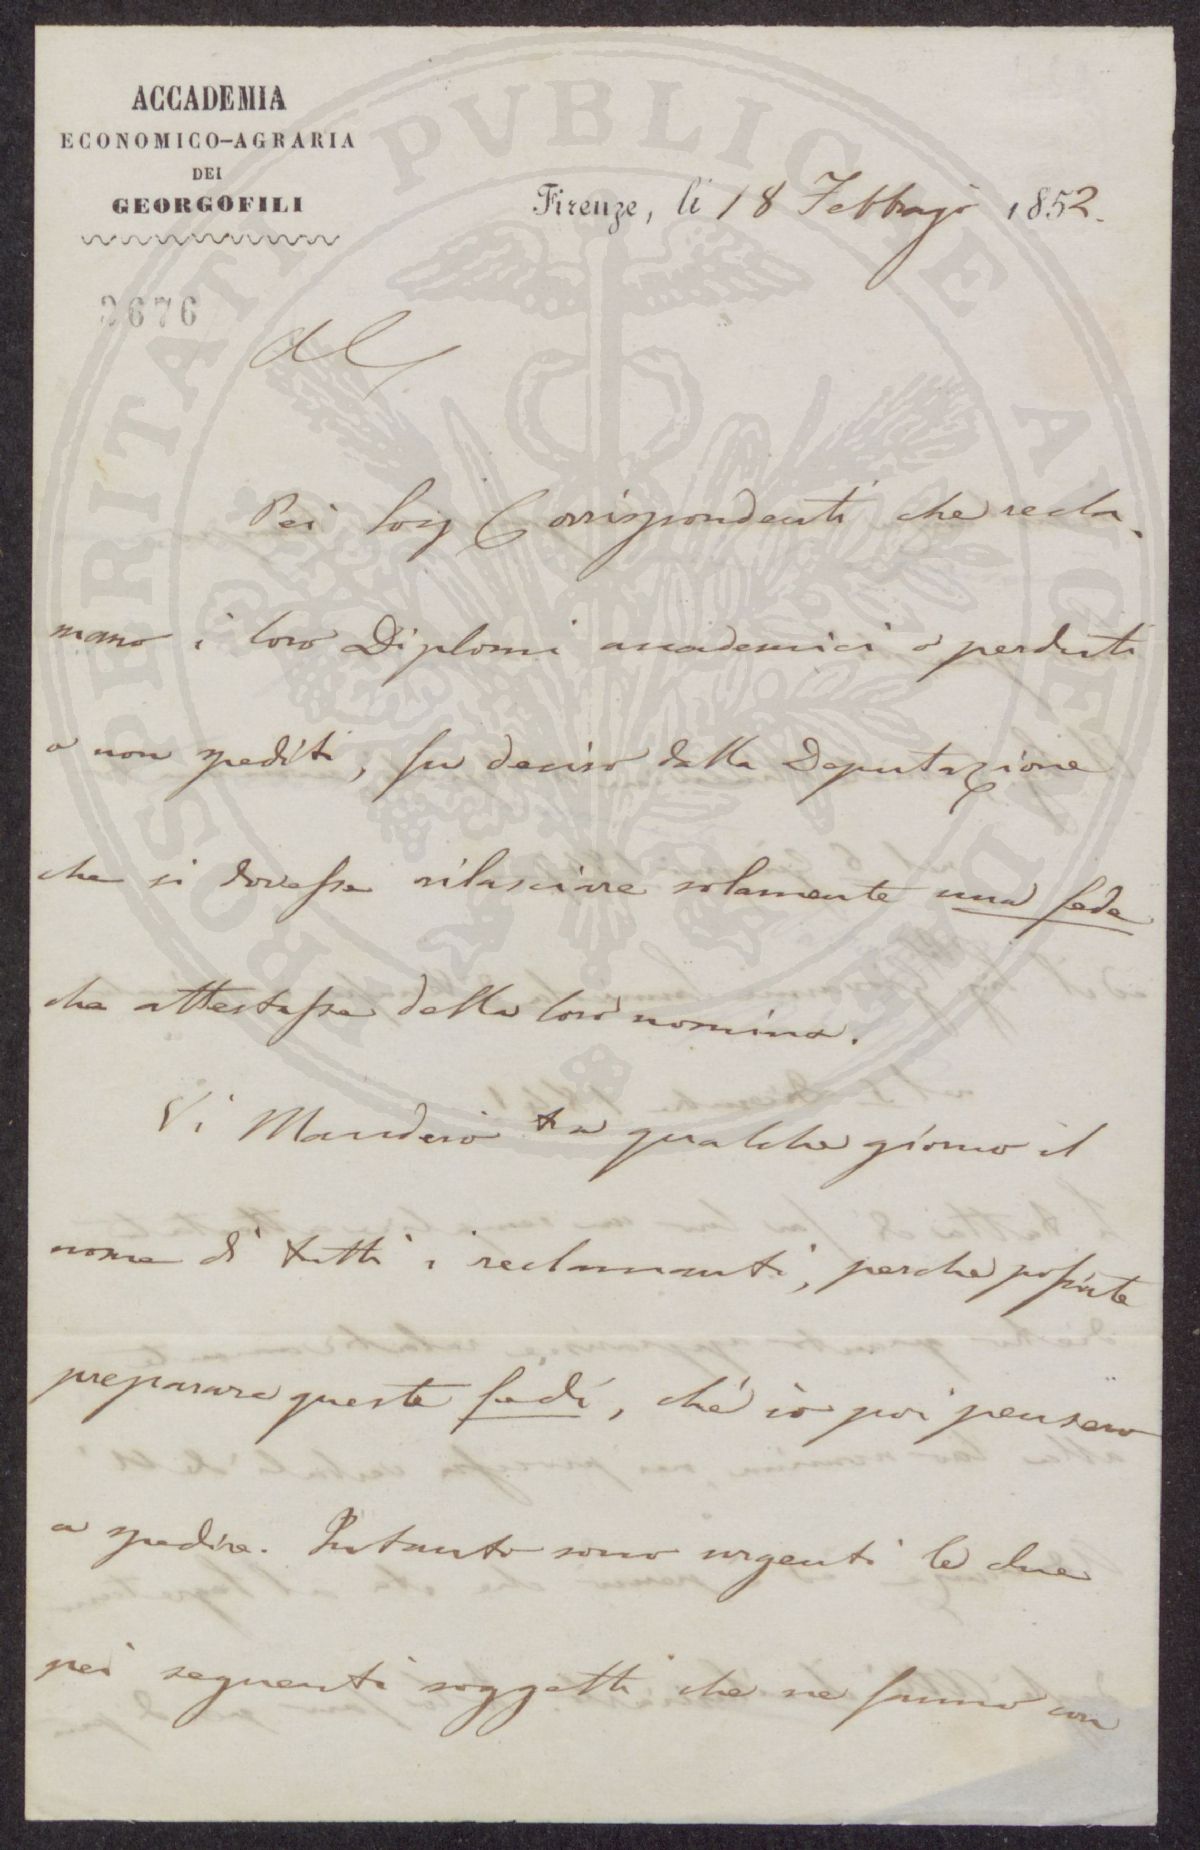 ACCADEMIA
ECONOMICO-AGRARIA
DEI
GEORGOFILI
Firenze, li 18 Febbrajo 1852.
2676
PROSPERITATI PVBLICAE AVGENDAE
Pei Socj Corrispondenti che recla-
mano i loro Diplomi accademici o perduti
o non spediti, fu deciso dalla Deputazione
che si dovesse rilasciare solamente una fede
che attestasse della loro nomina.
Vi Manderò tra qualche giorno il
nome di tutti i reclamanti, perché possiate
preparare queste fedi, ché io poi penserò
a spedire. Intanto sono urgenti le due
pei seguenti soggetti che ne fanno con